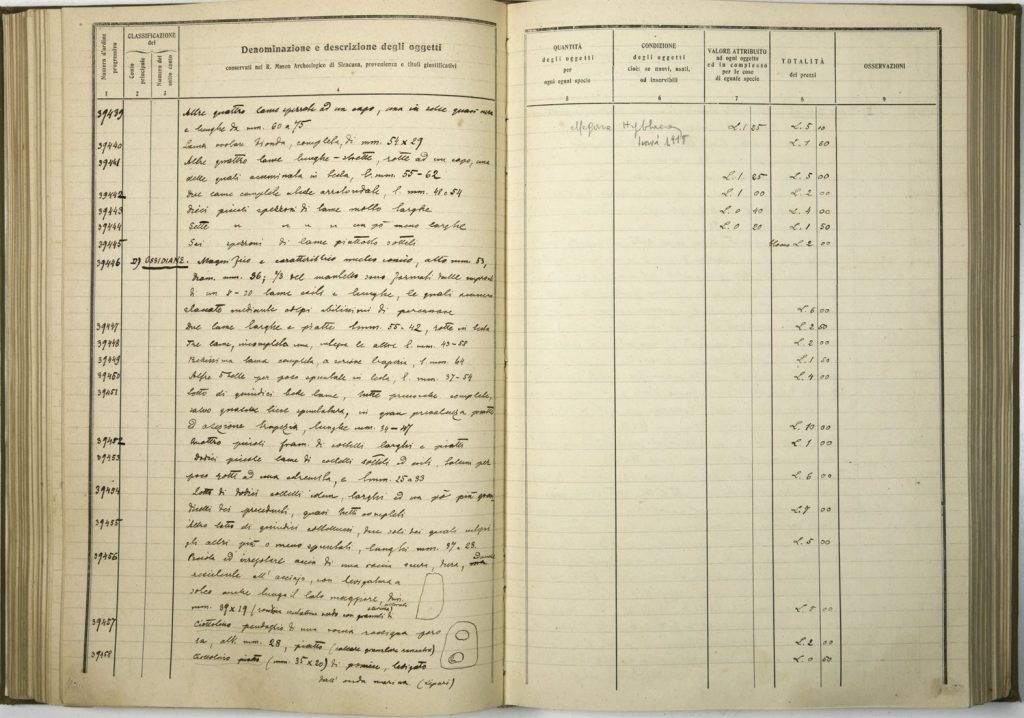 Numero d'ordine progressivo
CLASSIFICAZIONE del
Conto principale
Numero del sotto conto
Denominazione e descrizione degli oggetti
conservati nel R. Museo Archeologico di Siracusa, provenienza e titoli giustificativi
1 2 3 4
39439 Altre quattro lame spezzate ad un capo, una in selce quasi nera
e lunghe da mm. 60 a 75
39440 Lama ovolare bionda, completa, di mm. 54 x 29
39441 Altre quattro lame lunghe - strette, rotte ad un capo, una
delle quali acuminata in testa, l. mm. 55-62
39442 Due lame complete a teste arrotondate, l. mm. 48 e 54
39443 Dieci piccoli spezzoni di lame molto larghe
39444 Sette " " " " un pò meno larghe
39445 Sei spezzoni di lame piuttosto sottili
39446 D) OSSIDIANE. Magnifico e caratteristico nucleo conico, alto mm. 53,
diam. mm. 36; 2/3 del mantello sono formati dalle impronte
di un 8-10 lame esili e lunghe, le quali vennero
staccate mediante colpi abilissimi di percussione
39447 Due lame larghe e piatte lmm. 55-42, rotte in testa
39448 Tre lame, incompleta una, integre le altre l. mm. 43-58
39449 Bellissima lama completa, a sezione trapezia, l. mm. 64
39450 Altre belle per poco spuntate in testa, l. mm. 37-54
39451 Lotto di quindici belle lame, tutte pressoché complete,
salvo qualche lieve spuntatura, in gran prevalenza piatte
ed a sezione trapezia, lunghe mm. 34-47
39452 Quattro piccoli fram. di coltelli larghi e piatti
39453 Dodici piccole lame di coltelli sottili ed esili, talune per
poco rotte ad una estremità, e lmm. 25 a 33
39454 Lotto di dodici coltelli idem, larghi ed un pò più gran
dicelli dei precedenti, quasi tutti completi
39455 Altro lotto di quindici coltellucci, due soli dei quali integri
gli altri più o meno spuntati, lunghi mm. 37-28.
39456 Piccola ed irregolare accia di una roccia scura, dura, ed anche
resistente all'acciajo, con levigatura a
solco anche lungo il lato maggiore, dim.
mm. 39 x 19
39457 Ciottolino pendaglio di una roccia rossigna poro
sa, alt. mm. 28, piatto (calcare granulare cementato)
39458 Ciottolino piatto (mm. 35 x 20) di pomice, levigato
dall'onda marina. (Lipari)
QUANTITÀ degli oggetti per ogni egual specie
CONDIZIONE degli oggetti cioè: se nuovi, usati, od inservibili
VALORE ATTRIBUITO ad ogni oggetto ed in complesso per le cose di eguale specie
TOTALITÀ dei prezzi
OSSERVAZIONI
5 6 7 8 9
Megara Hyblaea L. 1 25 L. 5 10
1915 L. 1 60
L. 1 25 L. 5 00
L. 1 00 L. 2 00
L. 0 40 L. 4 00
L. 0 20 L. 1 50
L. 2 00
L. 6 00
L. 2 50
L. 2 00
L. 1 50
L. 4 00
L. 10 00
L. 1 00
L. 6 00
L. 7 00
L. 5 00
L. 5 00
L. 2 00
L. 0 50